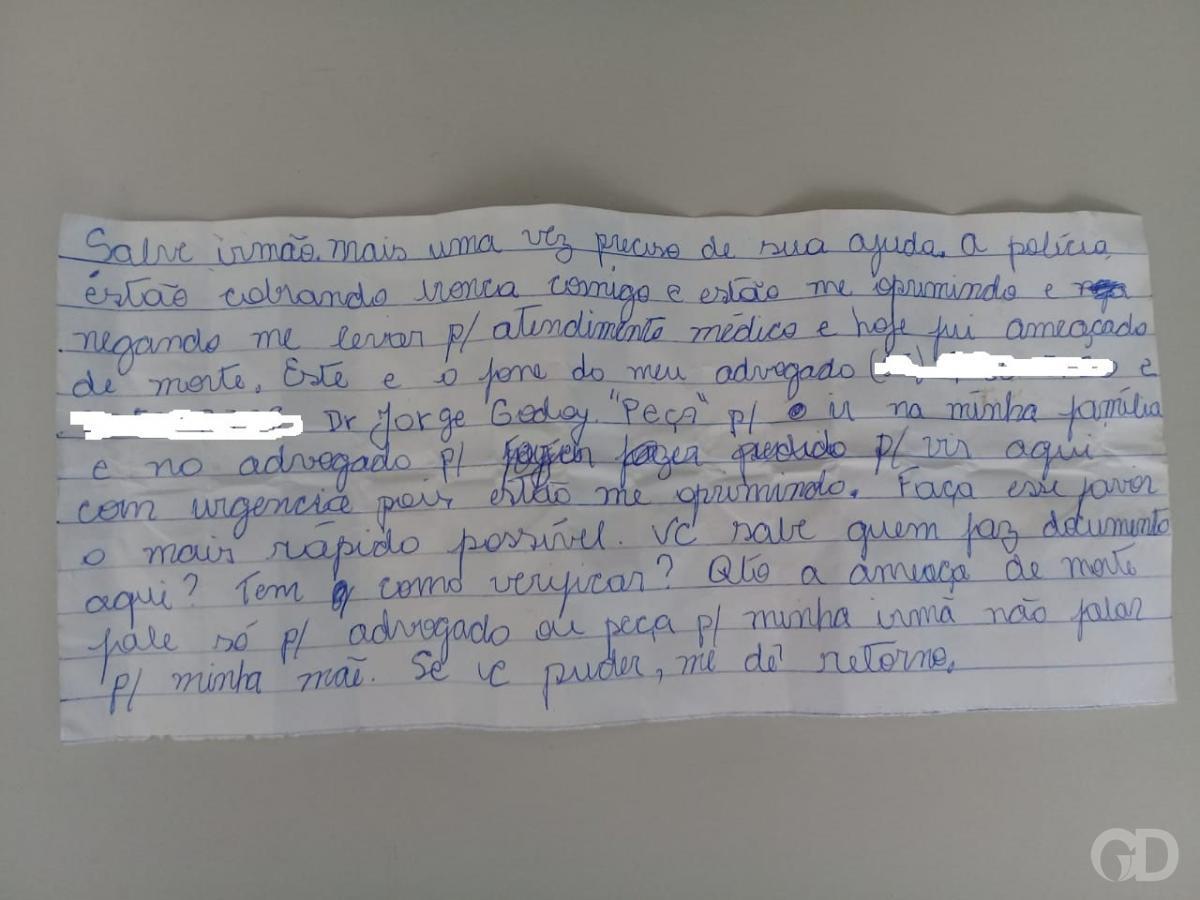 Salve irmão. mais uma vez preciso de sua ajuda. a polícia
estão cobrando ronca comigo e estão me oprimindo e
negando me levar p/ atendimento médico e hoje fui ameaçado
de morte. Este e o fone do meu advogado ( e
Dr Jorge Godoy. "Peça" p/ ir na minha família
e no advogado p/ fazer p/ vir aqui
com urgencia pois estão me oprimindo. Faça esse favor
o mais rápido possível. VC sabe quem faz documento
aqui? Tem como verificar? Qto a ameaça de morte
fale só p/ advogado ou peça p/ minha irmã não falar
p/ minha mãe. Se vc puder, me dê retorno.
GD